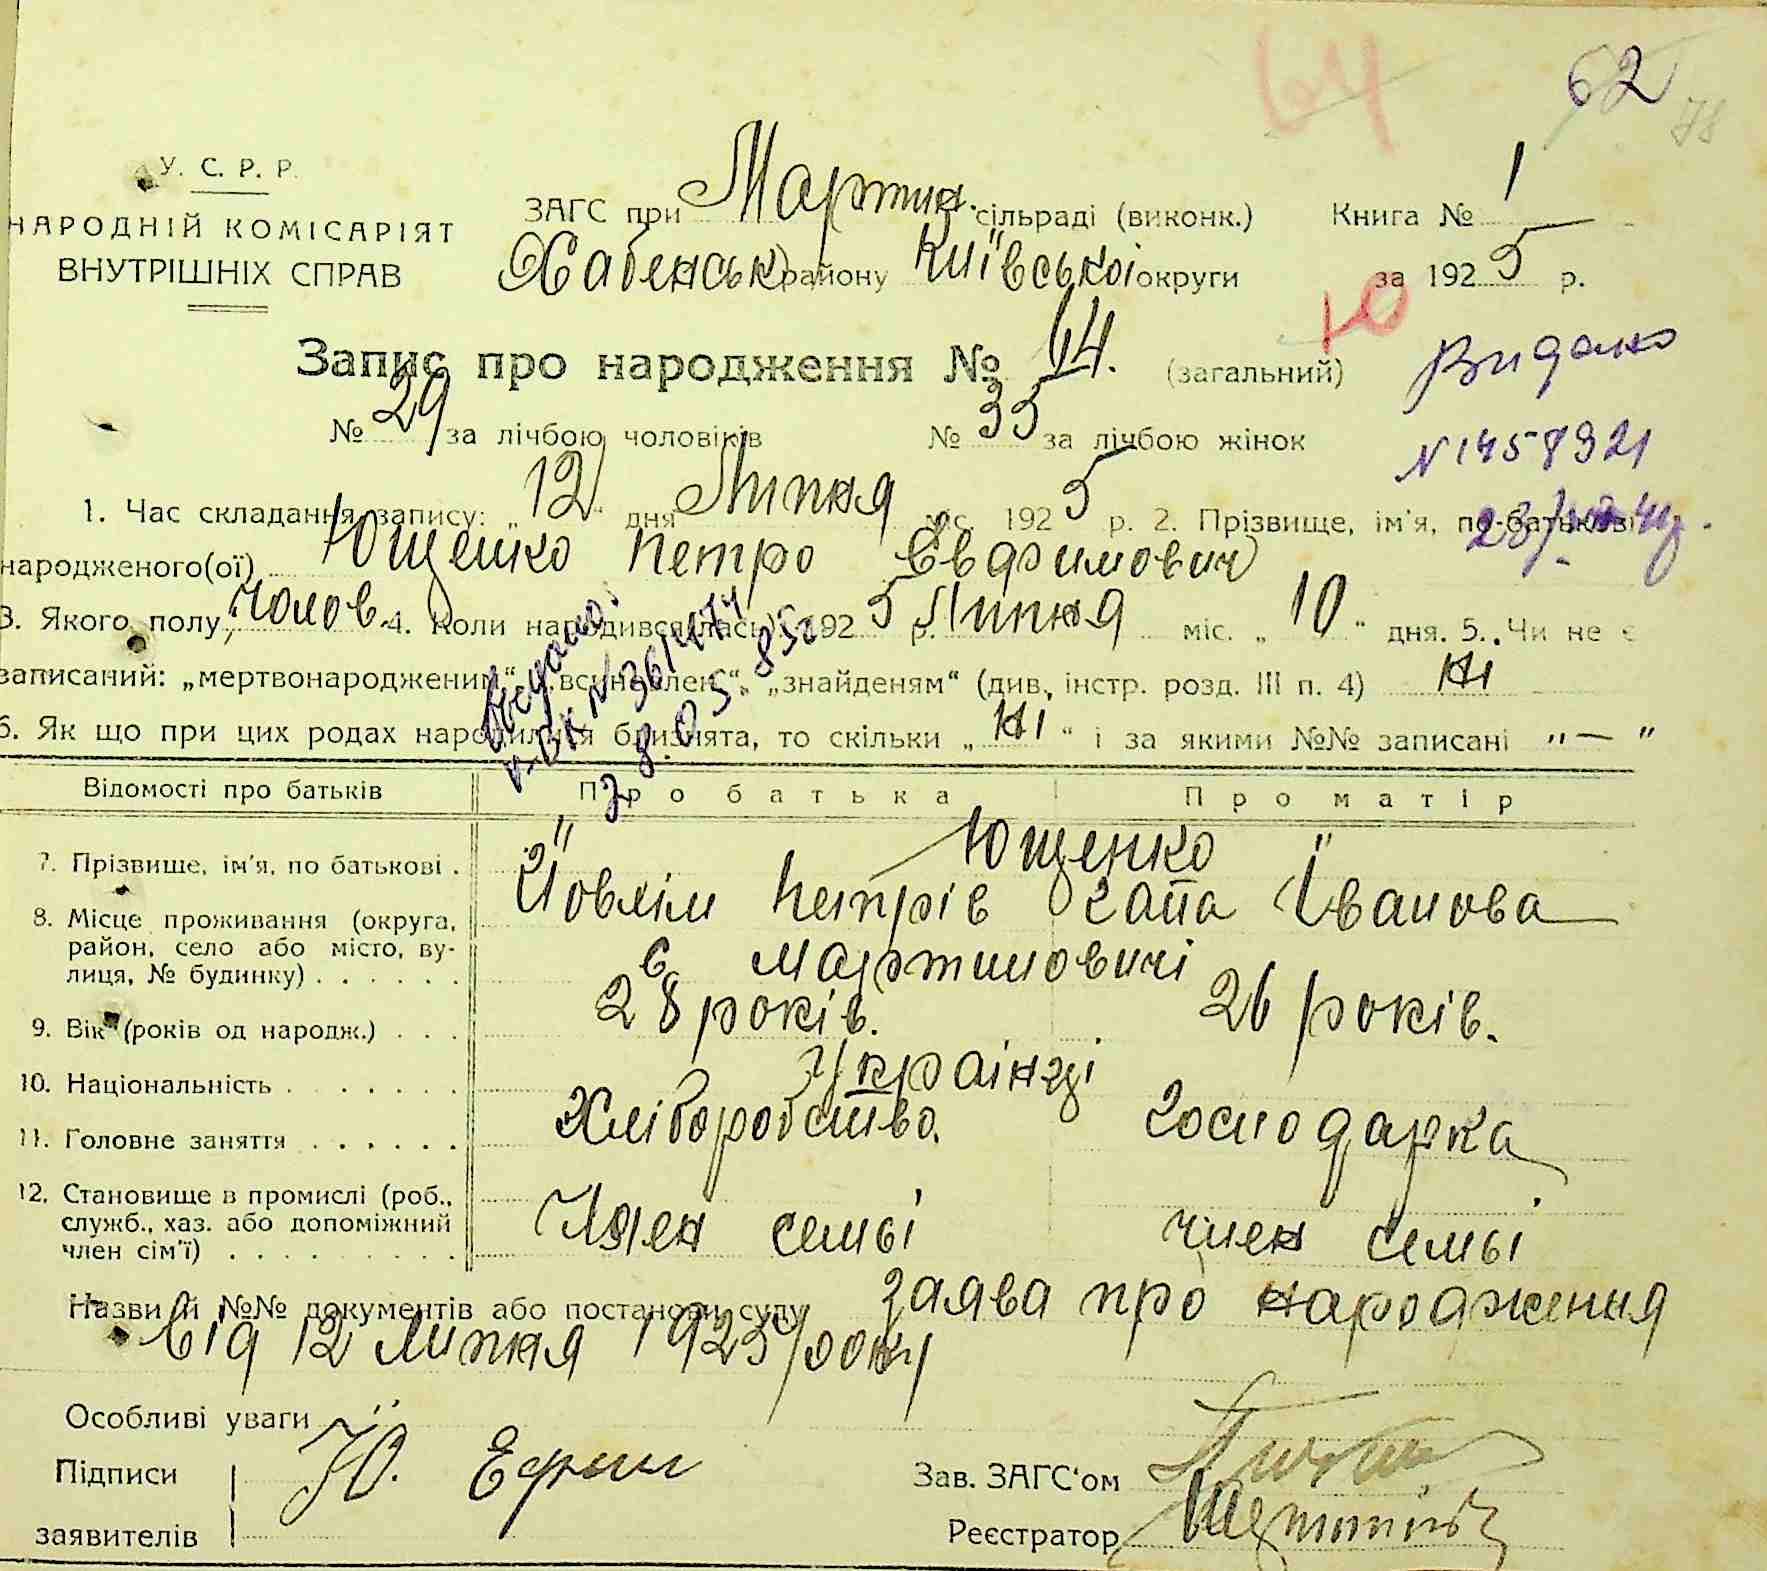 64
62
78
У. С. Р. Р.
НАРОДНІЙ КОМІСАРІЯТ
ВНУТРІШНІХ СПРАВ
ЗАГС при Мартин. сільраді (виконк.)
Хабенськ району Київської округи
Книга № 1
за 1925 р.
Ю
Запис про народження № 64. (загальний)
Видано
№ 29 за лічбою чоловіків № 35 за лічбою жінок
N 1458921
1. Час складання запису: „12" дня Липня міс. 1925 р. 2. Прізвище, ім'я, по-батькові
народженого(ої) Ющенко Петро Євфимович
3. Якого полу, чолов. 4. Коли народився(лась): 1925 р. Липня міс. „10" дня. 5. Чи не є
записаний: „мертвонародженим", „всиновлен.", „знайденям" (див. інстр. розд. III п. 4) Ні
6. Як що при цих родах народилися близнята, то скільки „Ні" і за якими №№ записані "—"
Відомості про батьків Про батька Про матір
7. Прізвище, ім'я, по батькові . Ющенко
Йовхім Петрів Гапа Іванова
8. Місце проживання (округа,
район, село або місто, ву-
лиця, № будинку) . . . . . . с Мартиновичі
9. Вік (років од народж.) . . . 28 років. 26 років.
10. Національність . . . . . . . Українці
11. Головне заняття . . . . . . Хліборобство. Господарка
12. Становище в промислі (роб.,
служб., хаз. або допоміжний
член сім'ї) . . . . . . . . . Член семьі член семьі
Назви й №№ документів або постанови суду заява про народження
від 12 Липня 1925 року
Особливі уваги
Підписи
заявителів
Ю. Ефим
Зав. ЗАГС'ом
Реєстратор